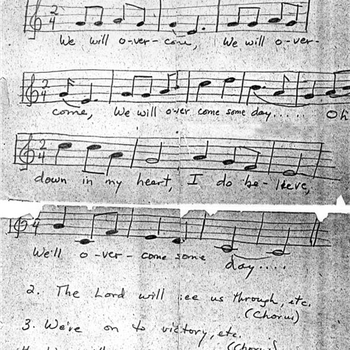 We will o-ver-come, We will o-ver-
come, We will over come some day..... Oh
down in my heart, I do be-lieve,
We'll o-ver-come some day....
2. The Lord will see us through, etc.
(Chorus)
3. We're on to victory, etc.